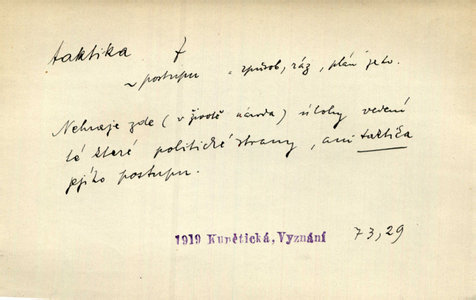 taktika f
~ postupu = způsob, ráz, „plán" jeho.
Nehraje zde (v životě národa) úlohy vedení
té které politické strany, ani taktika
jejího postupu.
1919 Kunětická, Vyznání 73,29